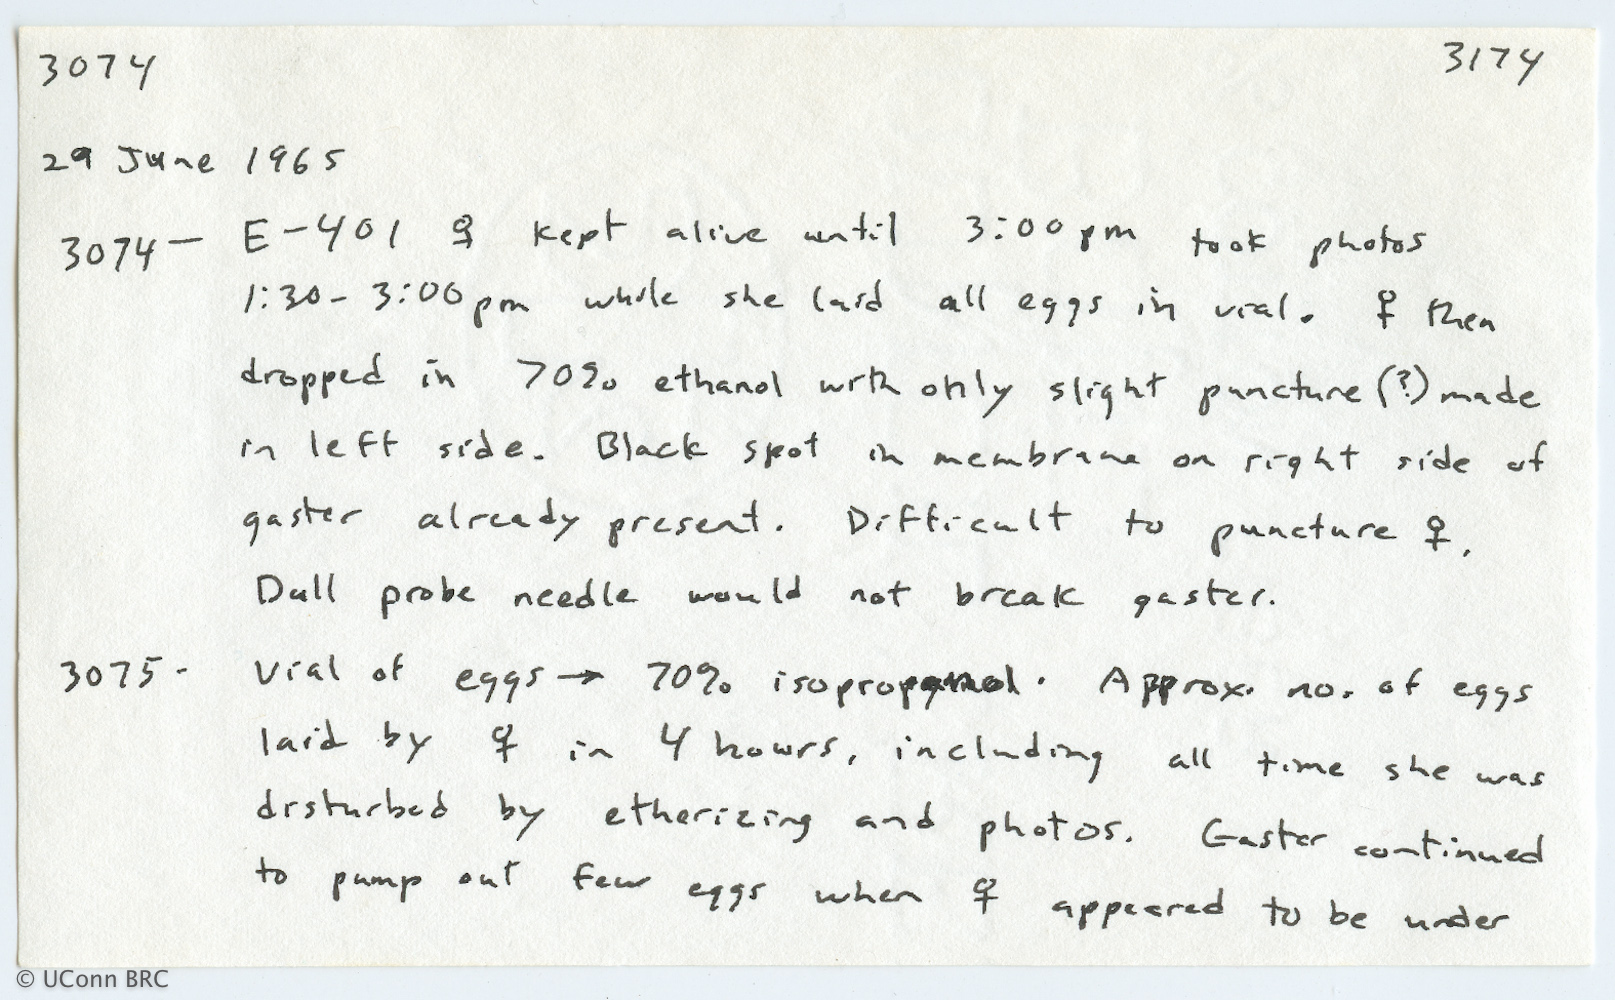 3074 3174
29 June 1965
3074— E-401 ♀ kept alive until 3:00 pm took photos
1:30- 3:00 pm while she laid all eggs in vial. ♀ then
dropped in 70% ethanol with only slight puncture (?) made
in left side. Black spot in membrane on right side of
gaster already present. Difficult to puncture ♀.
Dull probe needle would not break gaster.
3075- Vial of eggs → 70% isopropanol. Approx. no. of eggs
laid by ♀ in 4 hours, including all time she was
disturbed by etherizing and photos. Gaster continued
to pump out few eggs when ♀ appeared to be under
© UConn BRC